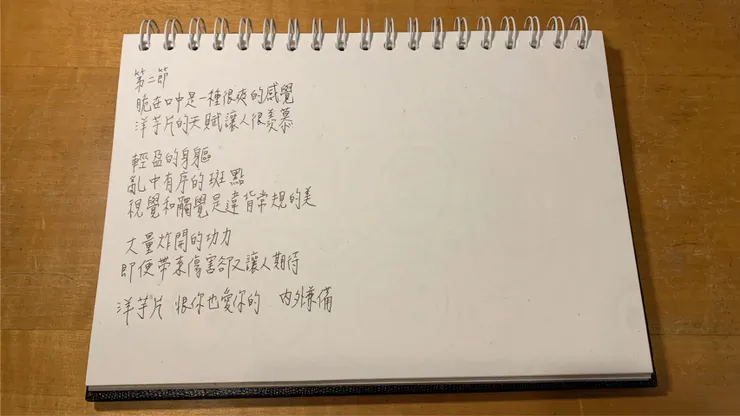 第二節
脆在口中是一種很爽的感覺
洋芋片的天賦讓人很羨慕
輕盈的身軀
亂中有序的斑點
視覺和觸覺是違背常規的美
大量炸開的功力
即便帶來傷害卻又讓人期待
洋芋片 恨你也愛你的 內外兼備